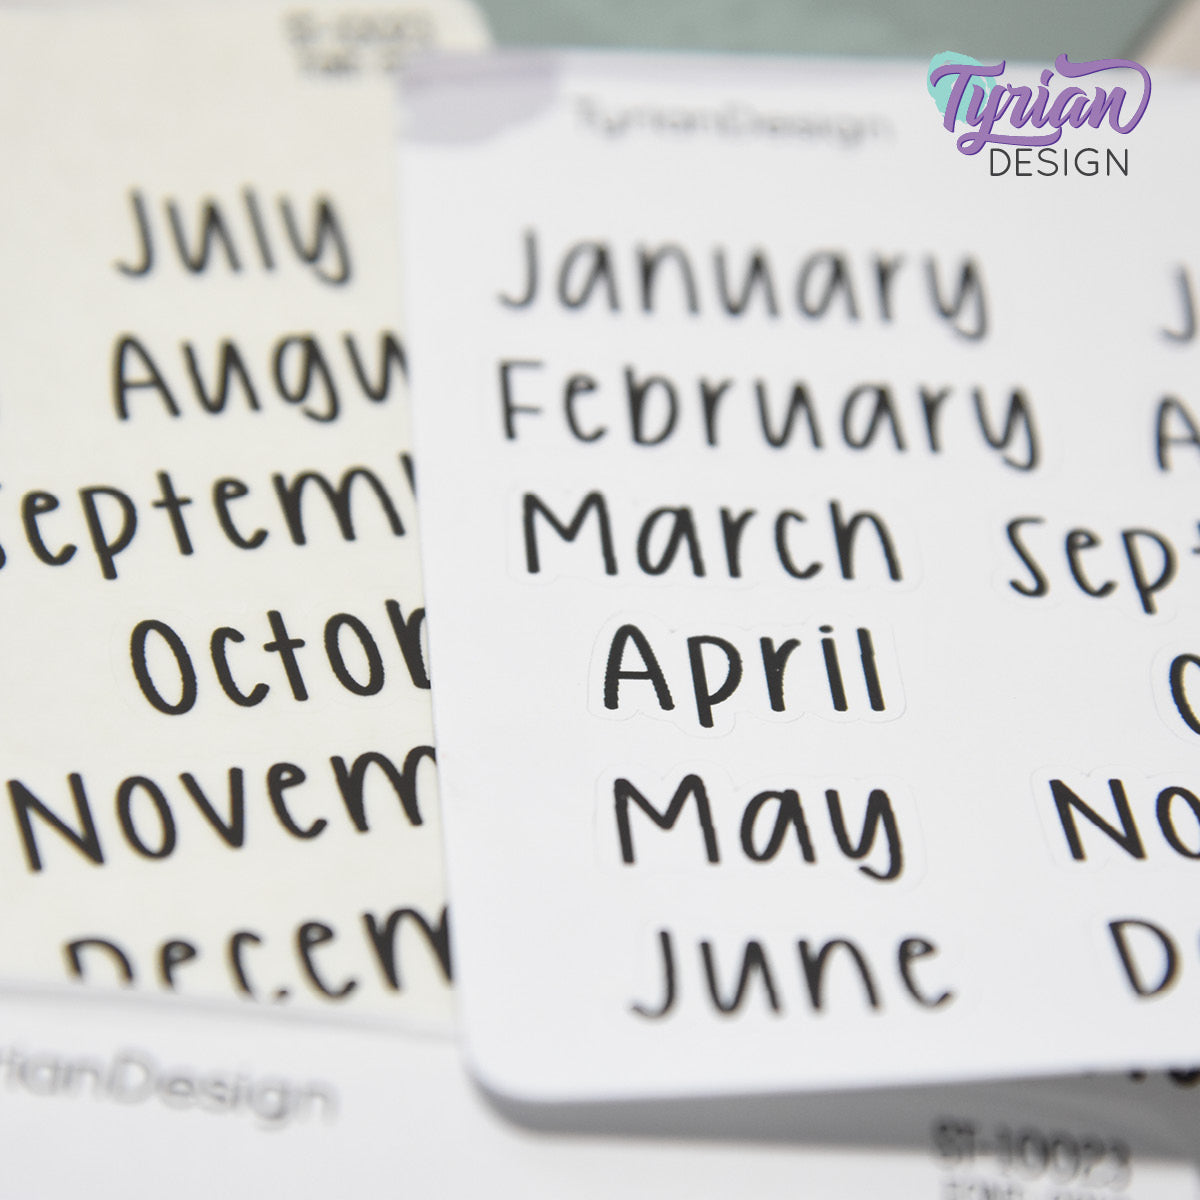 Tyrian
DESIGN
TyrianDesign
January
February
March
April
May
June
J
A
Sept
No
D
July
Augu
Septem
Octob
Novem
Decem
rianDesign
ST-10023